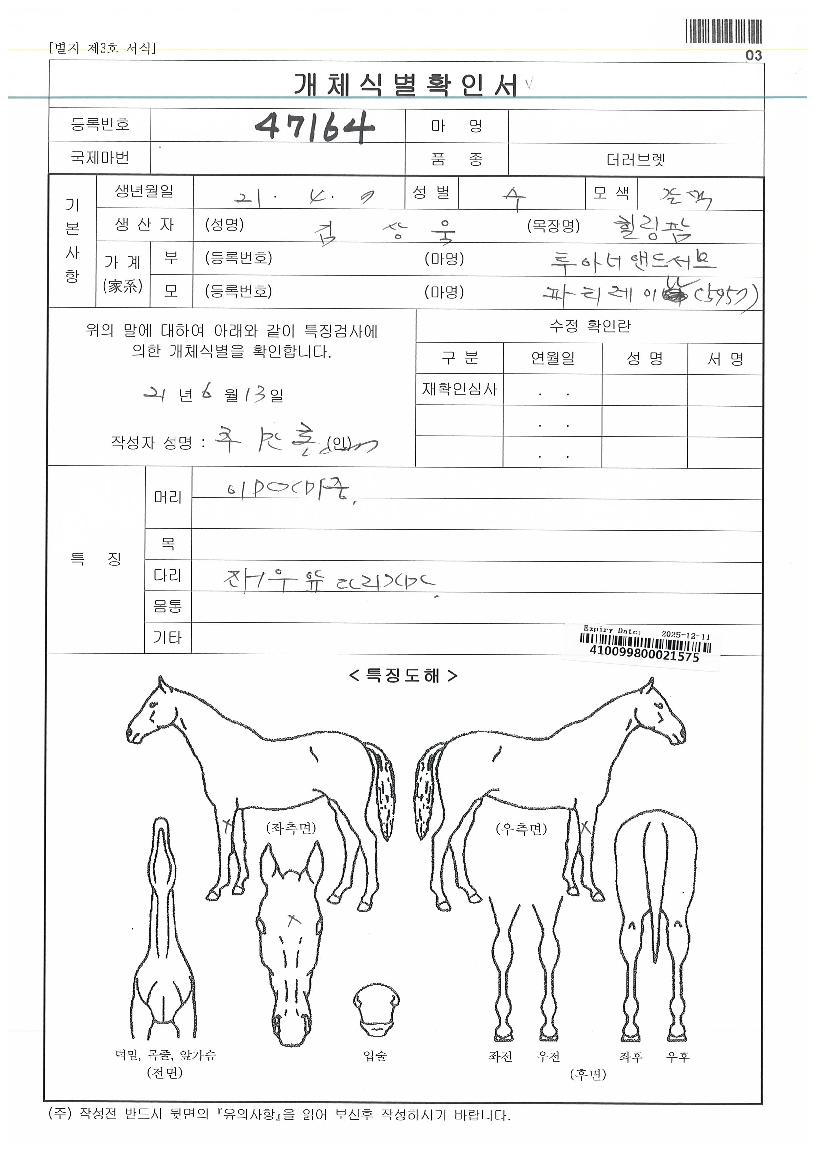 [별지 제3호 서식]
03
개체식별확인서
등록번호 47164 마 명
국제마번 품 종 더러브렛
기본사항
생년월일 21. 4. 9 성 별 수 모 색
생 산 자 (성명) 김 상 욱 (목장명) 힐링팜
가 계 (家系) 부 (등록번호) (마명) 투아너앤드서브
모 (등록번호) (마명) 파리레이 (5957)
위의 말에 대하여 아래와 같이 특징검사에
의한 개체식별을 확인합니다.
21 년 6 월 13 일
작성자 성명 : (인)
수정 확인란
구 분 연월일 성 명 서 명
재확인심사 . .
. .
. .
특 징
머리
목
다리
몸통
기타
Expiry Date: 2025-12-11
410099800021575
< 특징도해 >
(좌측면) (우측면)
턱밑, 목줄, 앞가슴
(전면)
입술
좌전 우전 좌후 우후
(후면)
(주) 작성전 반드시 뒷면의 『유의사항』을 읽어 보신후 작성하시기 바랍니다.